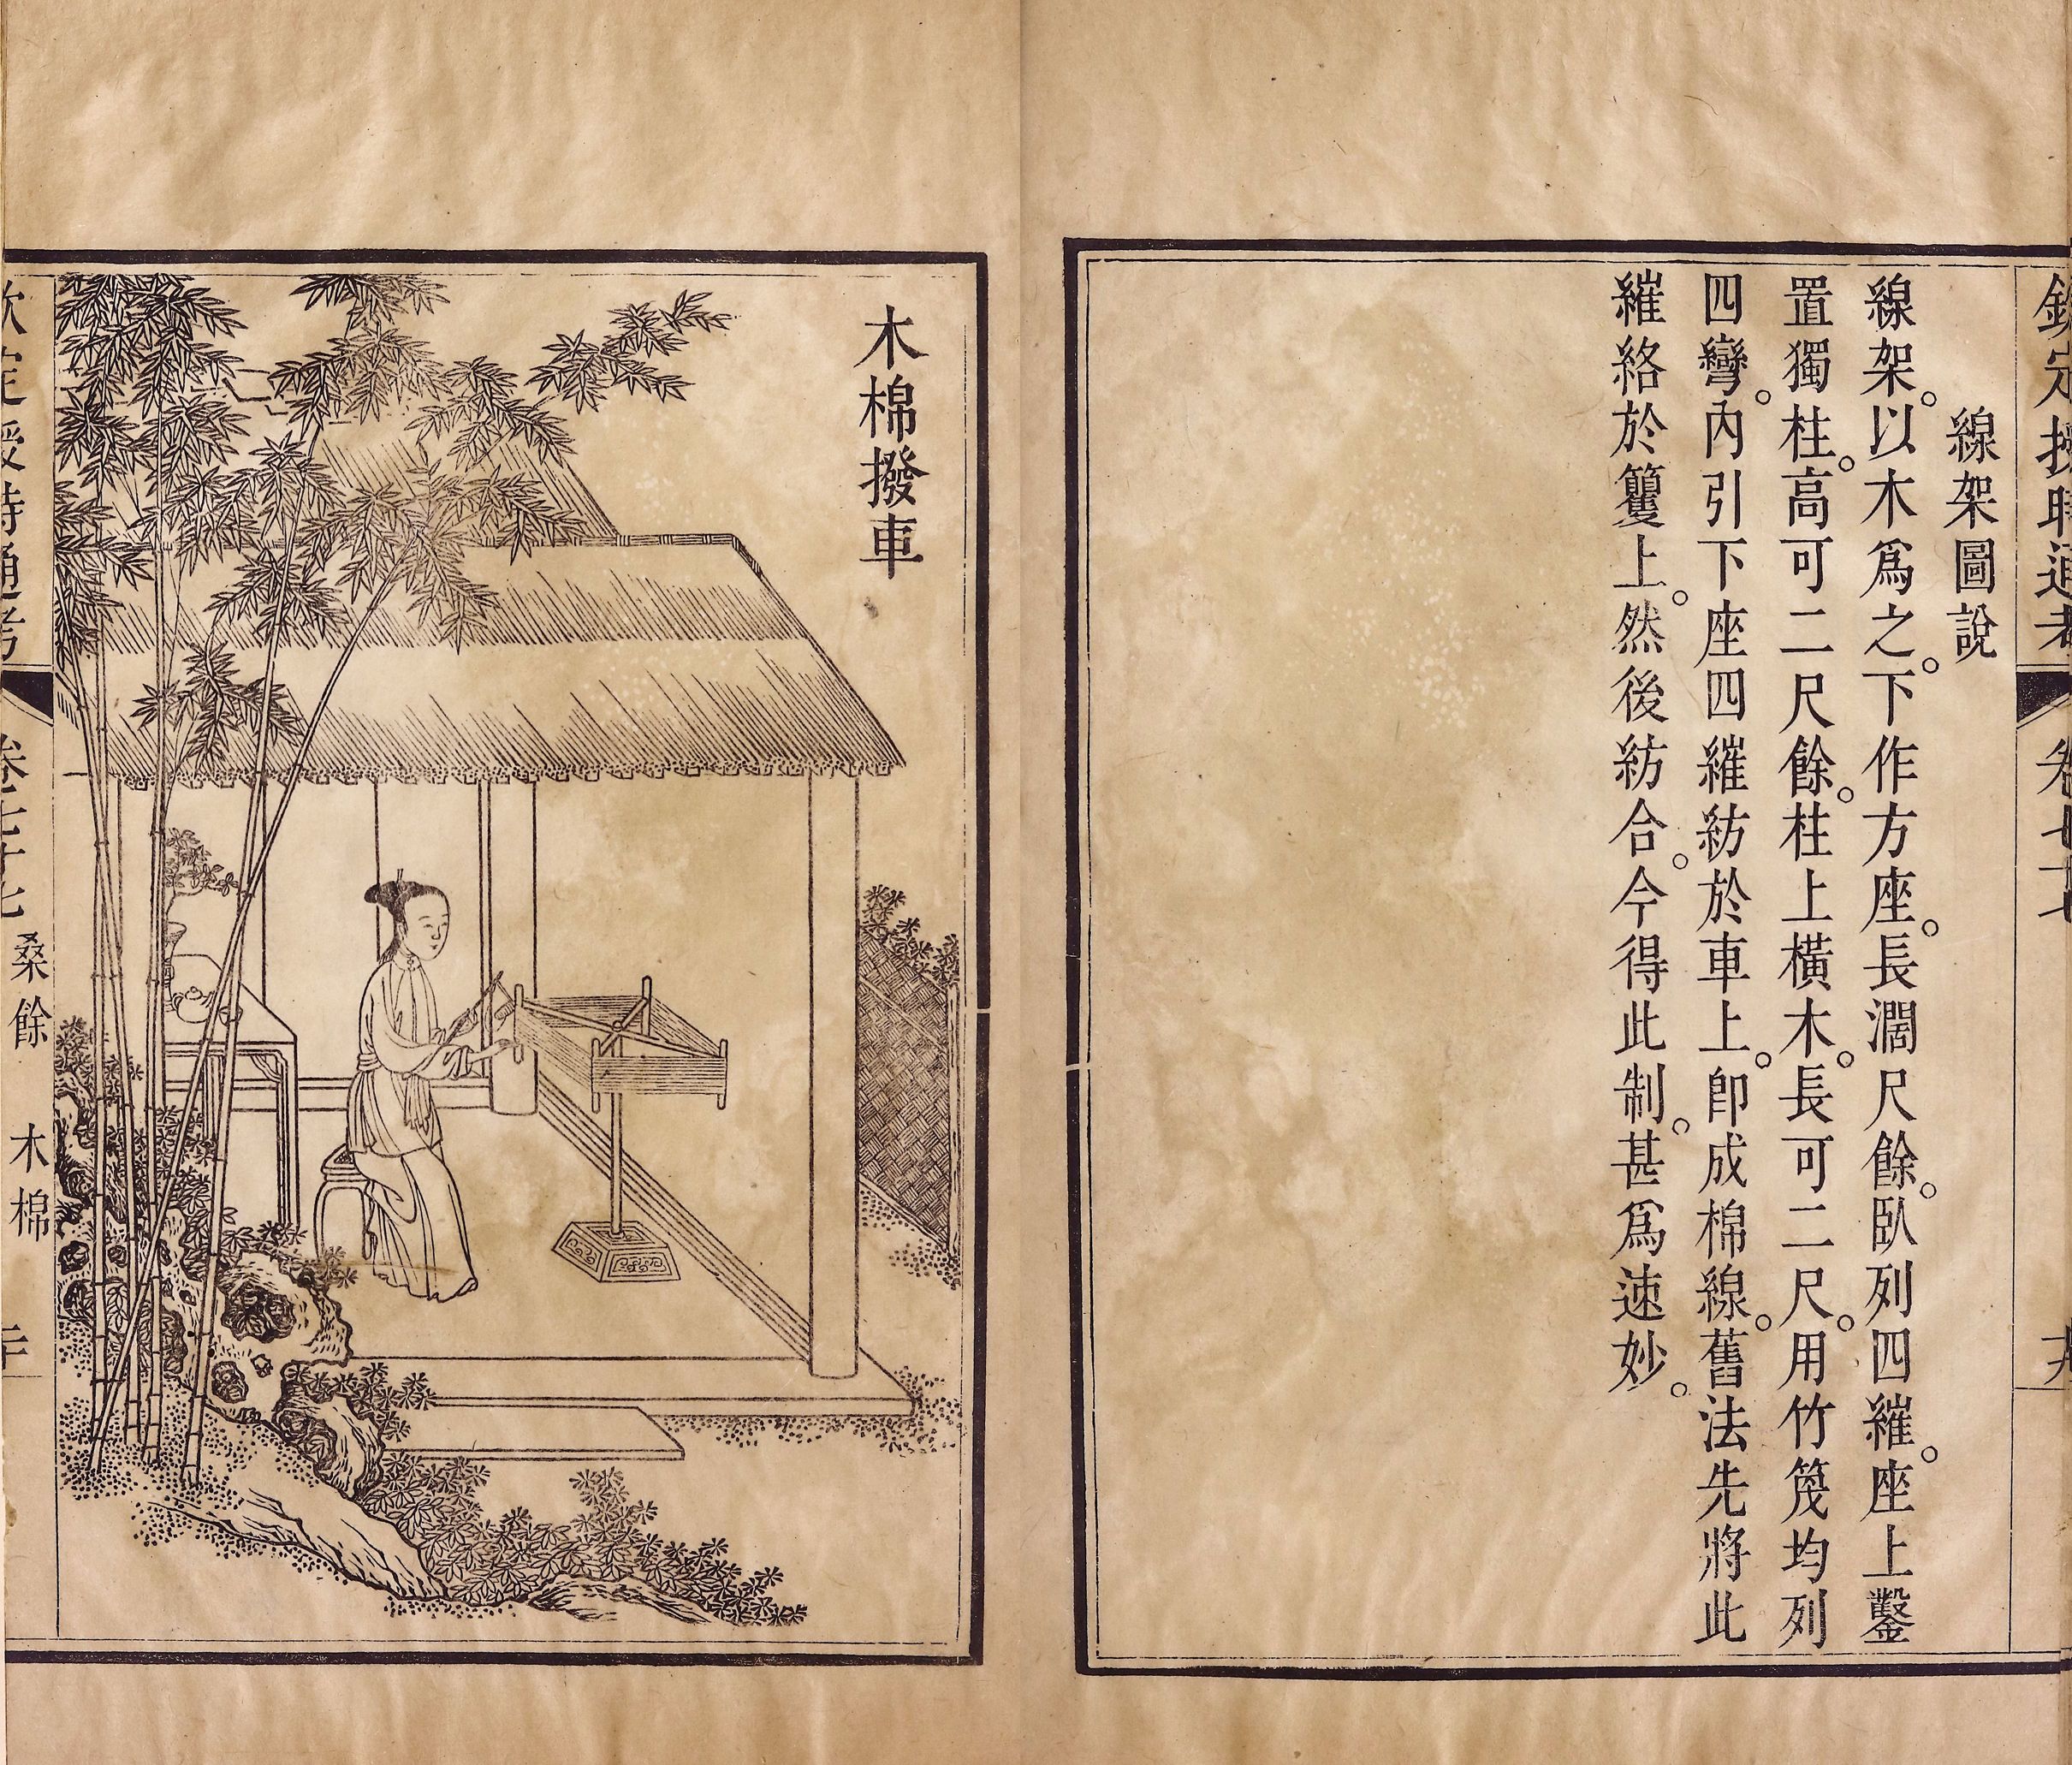 欽定授時通考 卷七十七
線架圖說
線架。以木爲之。下作方座。長濶尺餘。臥列四繀。座上鑿
置獨柱。高可二尺餘。柱上橫木。長可二尺。用竹篾均列
四彎。內引下座四繀紡於車上。卽成棉線。舊法先將此
繀絡於籰上。然後紡合。今得此制。甚爲速妙。
木棉撥車
欽定授時通考 卷七十七 桑餘 木棉